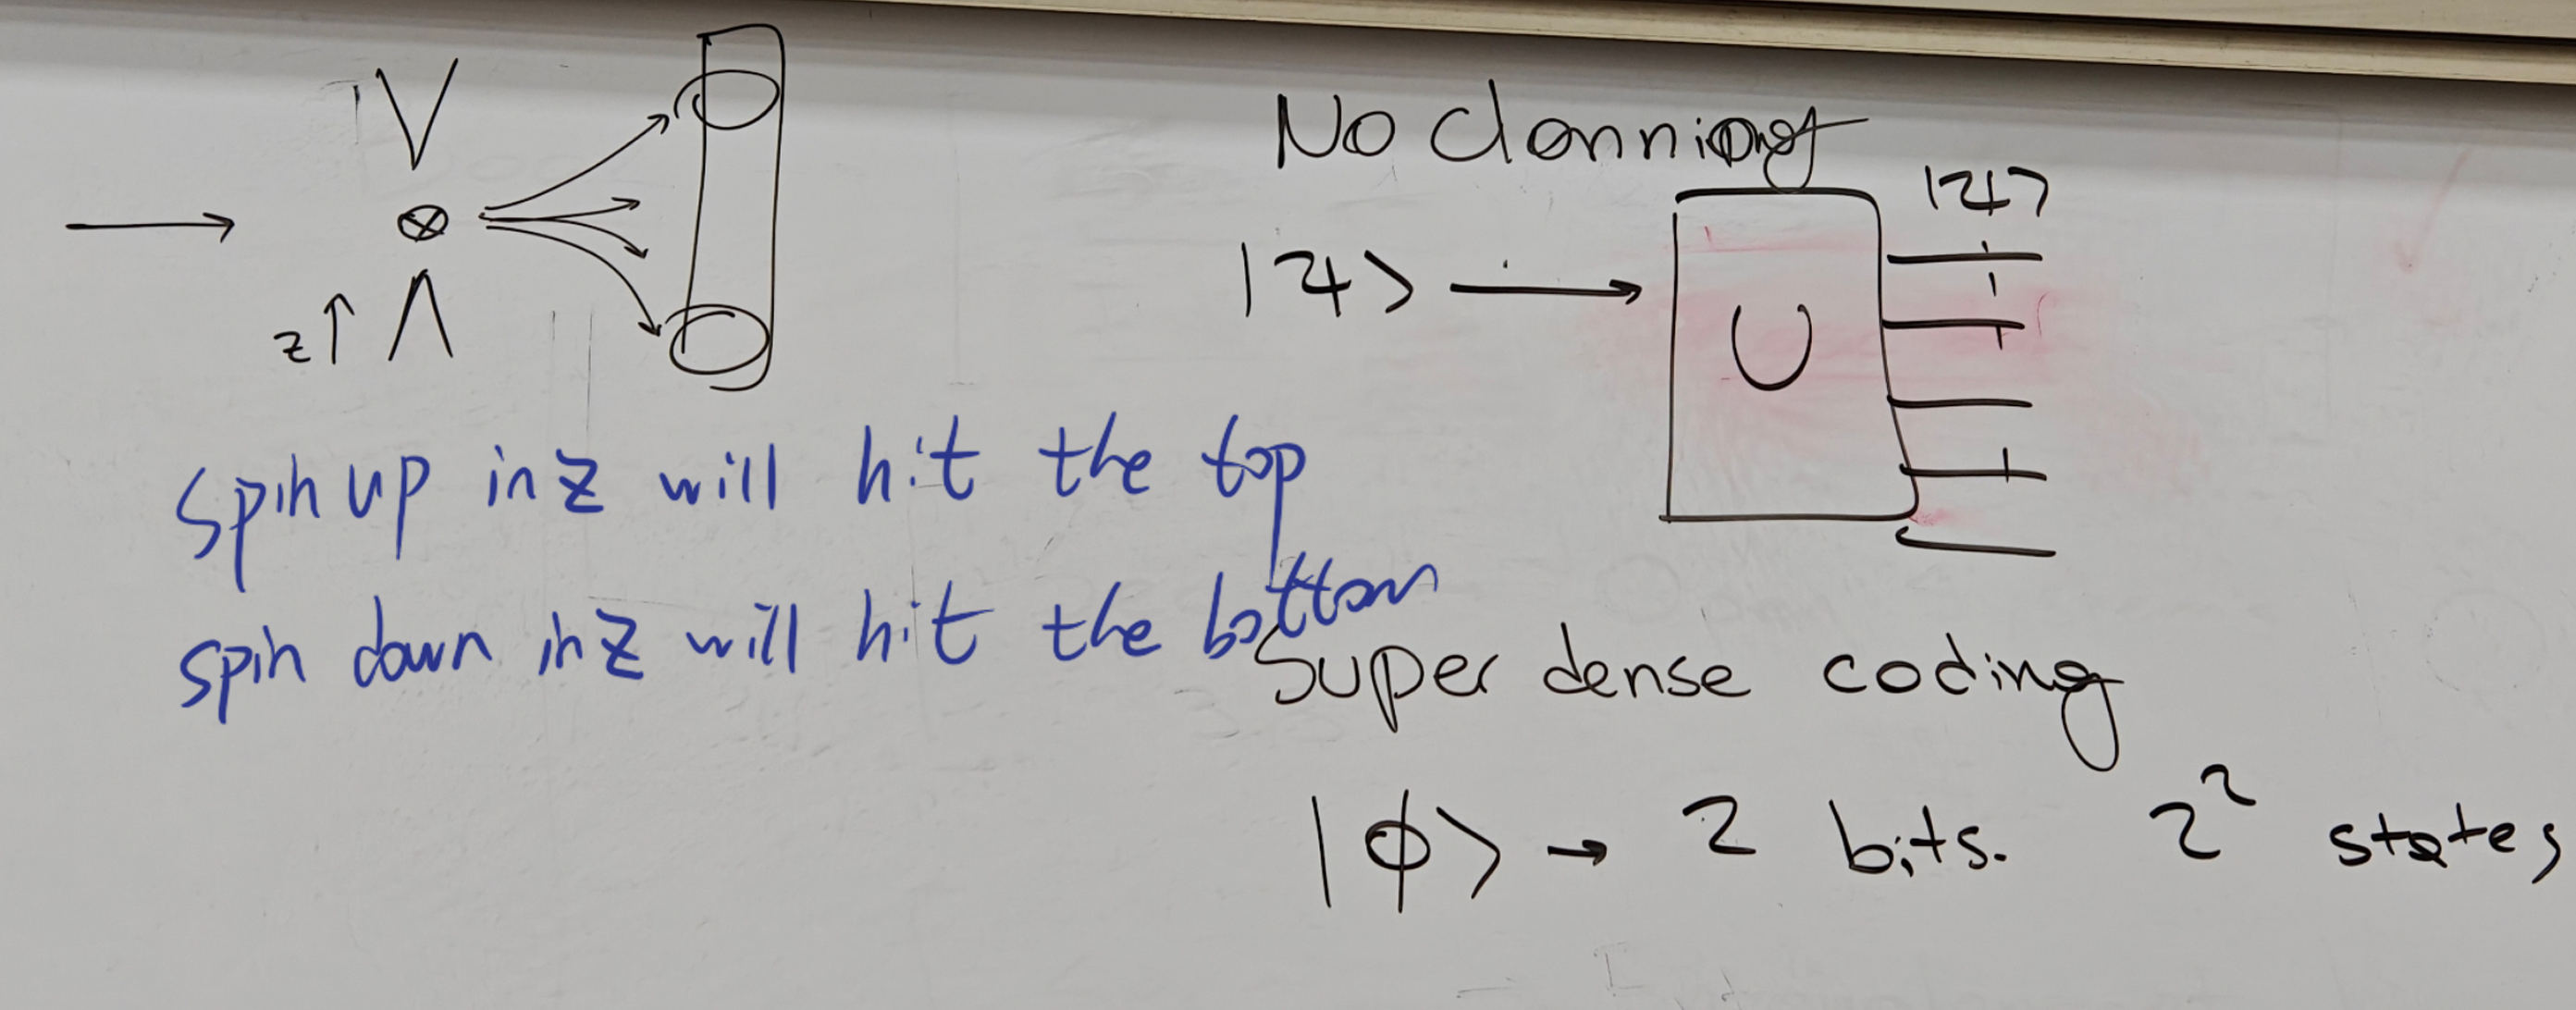 z↑
spin up in z will hit the top
spin down in z will hit the bottom
No Clonning
|ψ> →
U
|ψ>
Super dense coding
|ϕ> → 2 bits. 2² states